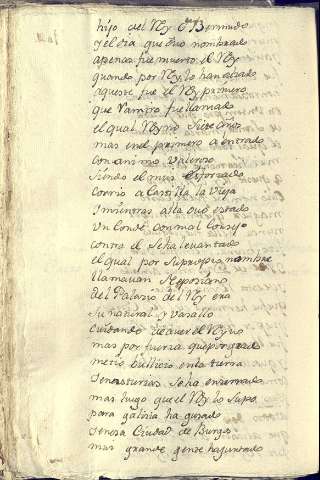 hijo del Rey Don Bermudo
y el dia que fue nombrado
apenas fue muerto el Rey
quando por Rey lo han alzado
aqueste fue el Rey primero
que Ramiro fue llamado
el qual Reyno Siete años
mas en el primero a entrado
con animo Valeroso
siendo el mas esforzado
Corrio a Castilla la Vieja
y mientras alla ovo estado
Un Conde con mal Consejo
contra el Se ha levantado
el qual por Su propio nombre
llamavan Nepoziano
del Palazio del Rey era
Su natural y vasallo
Cuidando de aver el Reyno
mas por fuerza que por grado
metio bullicio en la tierra
en Asturias Se ha encerrado
mas luego que el Rey lo Supo
para galizia ha
en esa Ciudad de Burgos
mui grande gente ha juntado